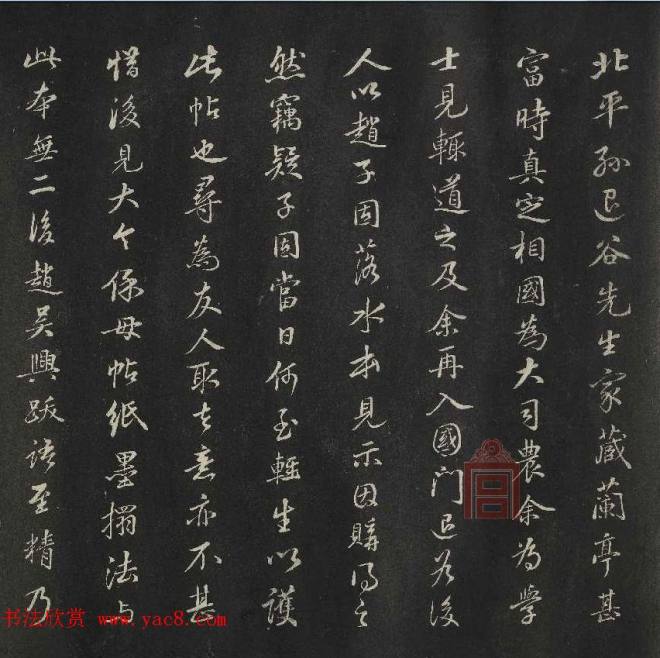 北平孙退谷先生家藏蘭亭甚
富時真定相國為大司農余為學
士見輙道之及余再入國門退谷後
人以趙子固落水本見示因購得之
然竊疑子固當日何至輕生以護
此帖也尋為友人取去意亦不甚
惜後見大令保母帖紙墨搨法与
此本無二後趙吴興跋语至精乃
书法欣赏 www.yac8.com